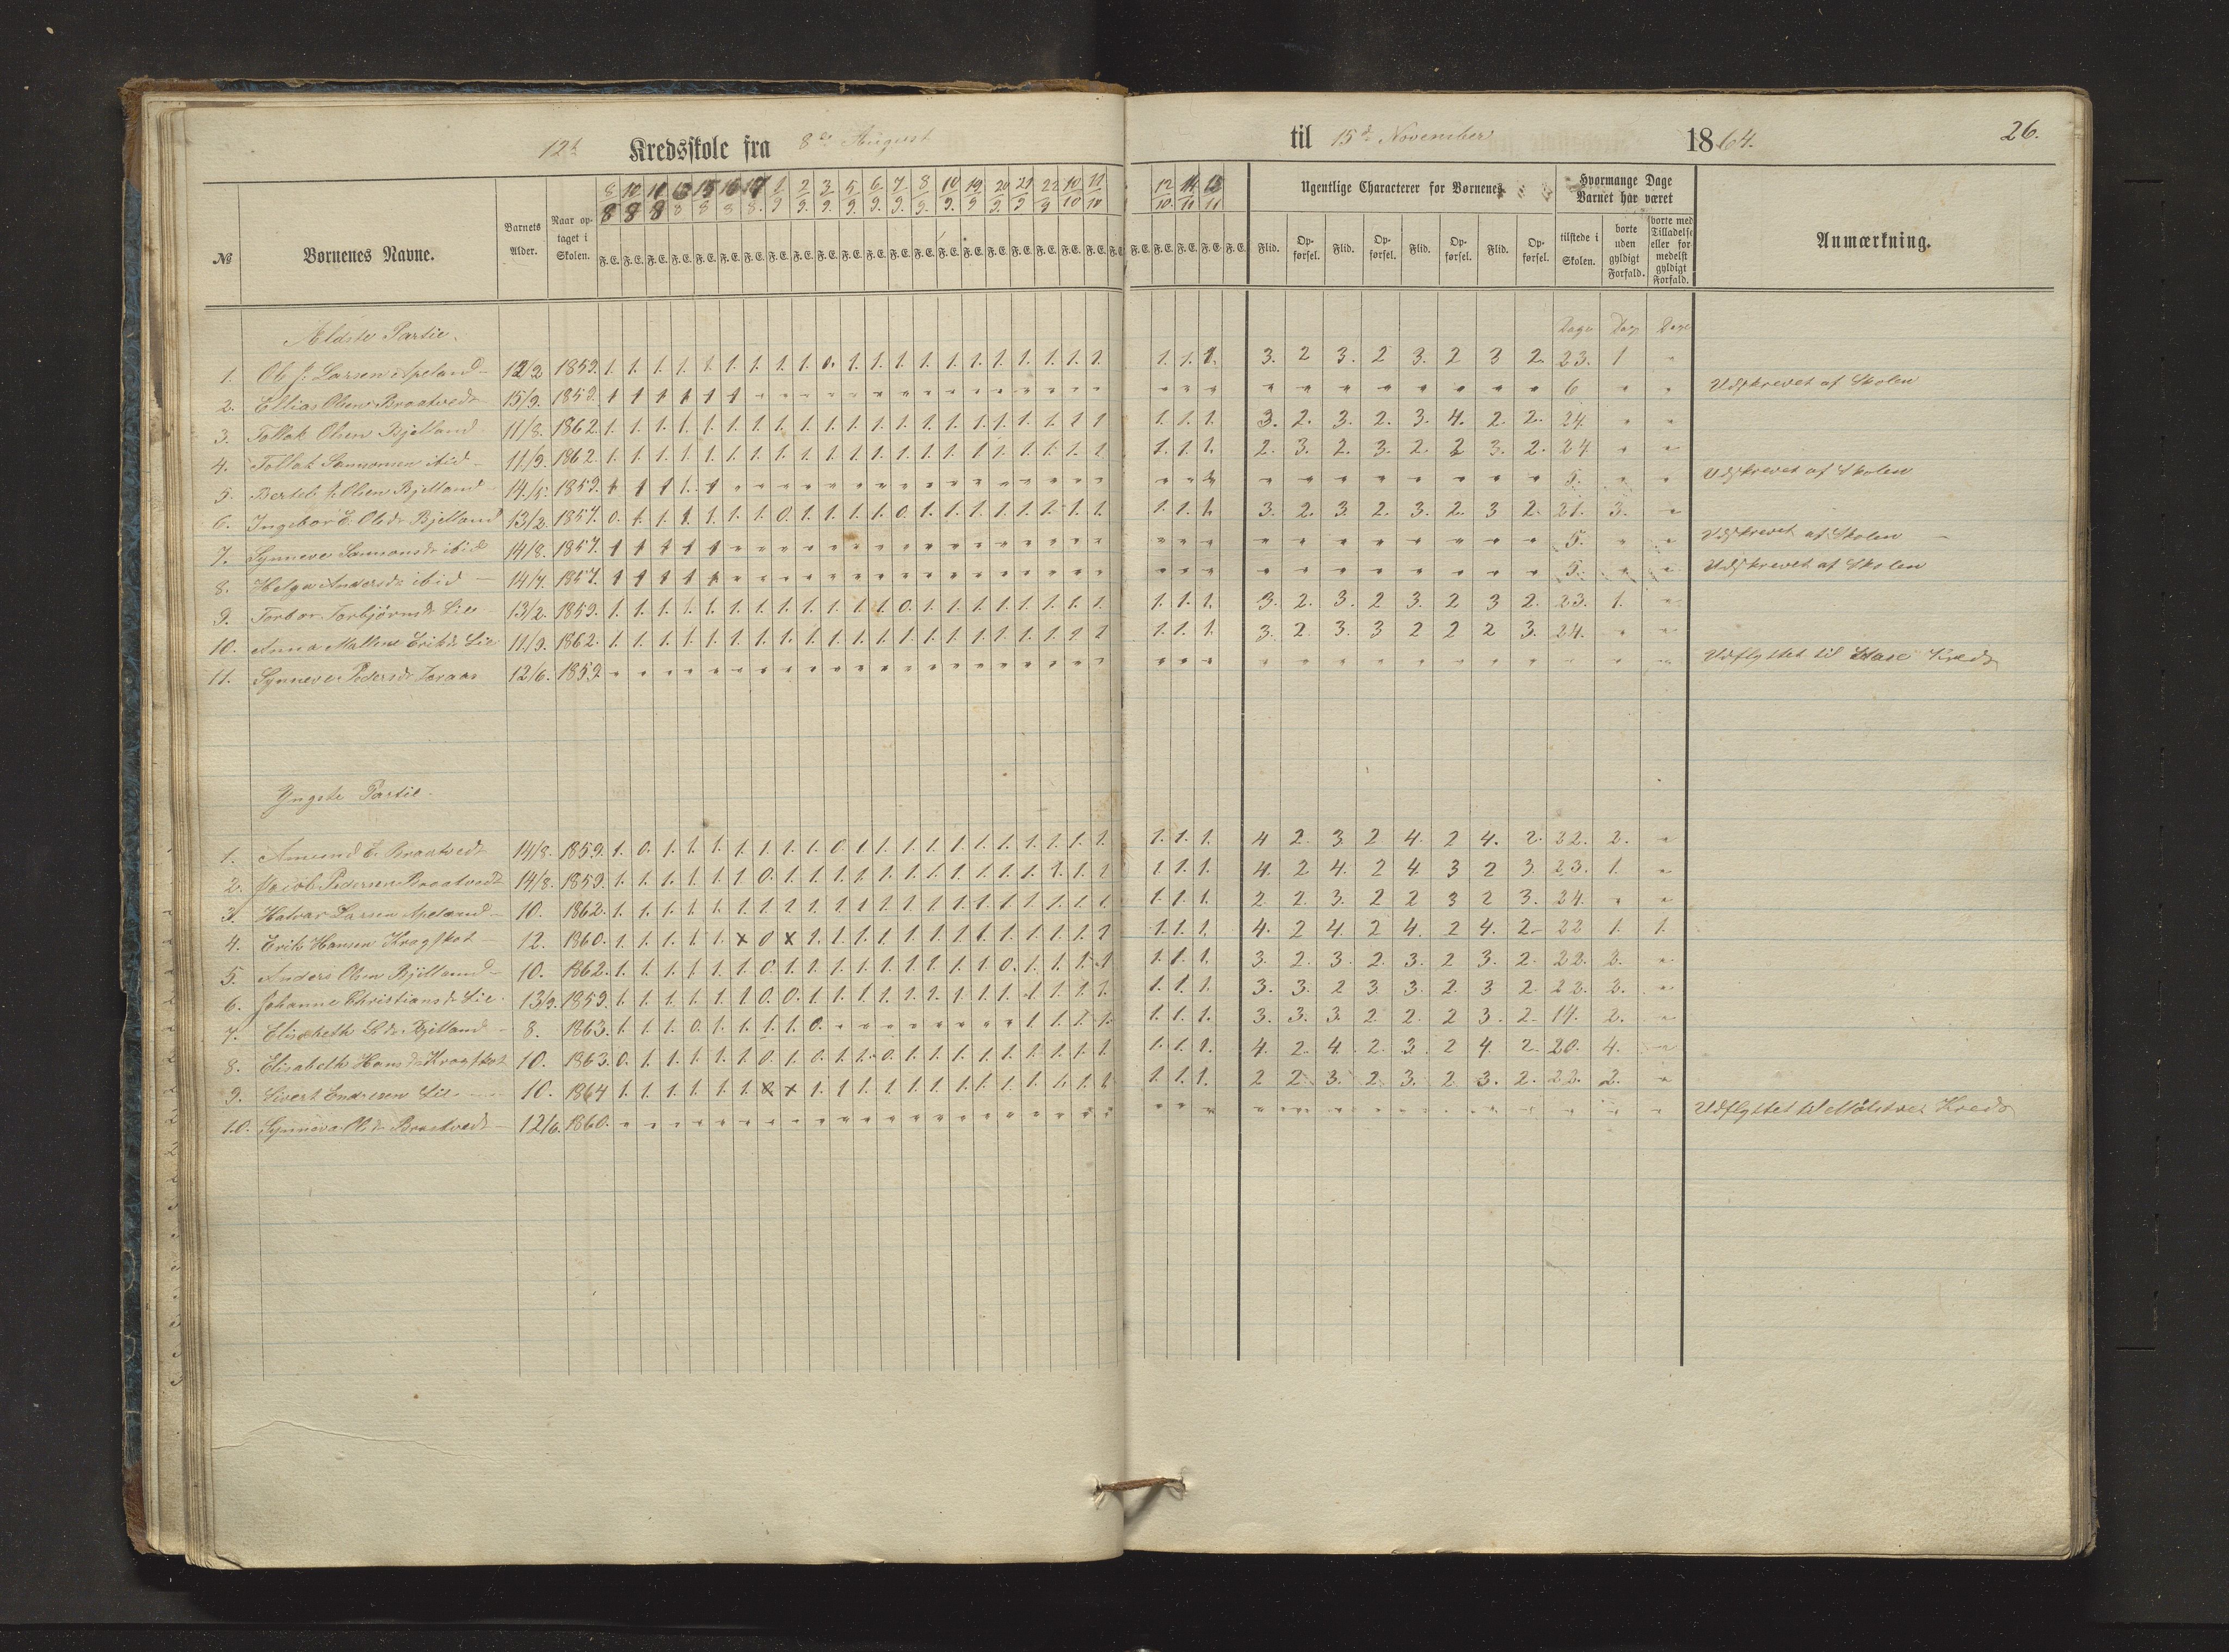 12te Kredsskole fra 8de August til 15de November 1864. 26.
№ Børnenes Navne. Barnets Alder. Naar optaget i Skolen. Ugentlige Characterer for Børnenes Hvormange Dage Barnet har været Anmærkning.
8/8 10/8 11/8 13/8 15/8 16/8 17/8 1/9 2/9 3/9 5/9 6/9 7/9 8/9 10/9 19/9 20/9 21/9 22/9 10/10 11/10 12/10 14/11 15/11
F. E. F. E. F. E. F. E. F. E. F. E. F. E. F. E. F. E. F. E. F. E. F. E. F. E. F. E. F. E. F. E. F. E. F. E. F. E. F. E. F. E. F. E. F. E. F. E. F. E. F. E. Flid. Opførsel. Flid. Opførsel. Flid. Opførsel. Flid. Opførsel. tilstede i Skolen. borte uden gyldigt Forfald. borte med Tilladelse eller formedelst gyldigt Forfald.
Ældste Partie. Dage Dage Dage
1. Ole J. Larsen Apeland 12/2 1859. 1. 1. 1. 1. 1. 1. 1. 1. 1. 0. 1. 1. 1. 1. 1. 1. 1. 1. 1. 1. 1. 1. 1. 1. 3. 2 3. 2 3. 2 3 2. 23. 1 "
2. Ellias Olsen Braatvedt 15/9. 1859. 1 1 1 1 1 1 " " " " " " " " " " " " " " " " " " " " " " " " " " 6 " " Udskrevet af Skolen
3. Tollak Olsen Bjelland 11/8. 1862. 1. 1. 1. 1. 1. 1. 1. 1. 1. 1. 1. 1. 1. 1. 1. 1. 1. 1. 1. 1 1 1. 1. 1. 3. 2. 3. 2. 3. 4. 2. 2. 24. " "
4. Tollak Samsonsen ibid 11/9. 1862. 1. 1. 1. 1. 1. 1. 1. 1. 1. 1. 1. 1. 1. 1. 1. 1 1. 1. 1. 1. 1. 1. 1. 1. 2. 3. 2. 3. 2. 2 3. 2. 24 " "
5. Bertel J. Olsen Bjelland 14/5. 1859. 1 1 1 1. 1 " " " " " " " " " " " " " " " " " " " " " " " " " " " 5. " " Udskrevet af Skolen
6. Ingebor E. Olsdr Bjelland 13/2. 1857. 0. 1. 1. 1. 1. 1. 1. 0. 1. 1. 1. 1. 0. 1. 1. 1. 1. 1. 1. 1. 1. 1. 1. 1. 3. 2. 3. 2. 3. 2. 3 2. 21. 3. "
7. Synneve Samsonsdr ibid 14/8. 1857. 1 1 1 1 1 " " " " " " " " " " " " " " " " " " " " " " " " " " " 5. " " Udskrevet af Skolen
8. Helga Andersdr ibid 14/7. 1857. 1 1 1 1 1 " " " " " " " " " " " " " " " " " " " " " " " " " " " 5. " " Udskrevet af Skolen
9. Torbor Torbjørnsdr Lie 13/2. 1859. 1. 1. 1. 1. 1. 1. 1. 1. 1. 1. 1. 1. 0. 1. 1. 1. 1. 1. 1. 1. 1. 1. 1. 1. 3. 2. 3. 2 3. 2 3 2. 23. 1. "
10. Anna Malline Eriksdr Lie 11/9. 1862. 1. 1. 1. 1. 1. 1. 1. 1. 1. 1. 1. 1. 1. 1. 1. 1. 1. 1. 1. 1 1 1. 1. 1. 3. 2. 3. 3 2 2 2 3. 24. " "
11. Synneve Pedersdr 12/6. 1859. " " " " " " " " " " " " " " " " " " " " " " " " " " " " " " " " " " " Udflyttet til Kreds
Yngste Partie.
1. Amund E. Braatvedt 14/8. 1859. 1. 0. 1. 1. 1. 1. 1. 1. 1. 0. 1 1. 1. 1. 1. 1. 1. 1. 1. 1. 1. 1. 1. 1. 4 2. 3. 2 4. 2 4. 2. 22. 2. "
2. Jacob Pedersen Braatvedt 14/8. 1859. 1. 1. 1. 1. 1. 1 0. 1. 1. 1. 1. 1. 1. 1. 1. 1. 1. 1. 1. 1. 1. 1. 1. 1. 4. 2 4. 2 4. 3 2 3. 23. 1. "
3. Halvar Larsen Apeland 10. 1862. 1. 1. 1. 1. 1. 1. 1. 1. 1. 1. 1. 1. 1. 1. 1. 1. 1. 1. 1. 1. 1. 1. 1. 1. 2. 2. 3. 2 2 3 2 3. 24. " "
4. Erik Hansen Kragskot 12. 1860. 1. 1. 1. 1. 1. x 0 x 1. 1. 1. 1. 1. 1. 1. 1. 1. 1. 1. 1. 1 1. 1. 1. 4. 2 4. 2 4. 2 4. 2 22 1. 1.
5. Anders Olsen Bjelland 10. 1862. 1. 1. 1. 1. 1. 1. 0. 1. 1. 1. 1. 1. 1. 1. 1. 1. 0. 1. 1. 1. 1. 1. 1. 1. 3. 2. 3. 2. 3. 2 3. 2. 22. 2. "
6. Johanne Christiansdr Lie 13/9. 1859. 1. 1. 1. 1. 1. 1 0. 0. 1. 1. 1. 1. 1. 1. 1. 1. 1. 1. 1. 1. 1. 1. 1. 1. 3. 3. 2 3. 3. 2. 3 2. 22. 2. "
7. Elisabeth Bjelland 8. 1863. 1. 1. 1. 0. 1. 1. 1. 1. 0. " " " " " " " " 1. 1. 1. 1. 1. 1. 1. 3. 3. 3. 2. 2. 2 3. 2. 14. 2. "
8. Elisabeth Hansdr Kragskot 10. 1863. 0. 1. 1. 1. 1. 1. 0. 1. 0. 1. 1. 0. 1. 1. 1. 1. 1. 1. 1. 1. 1. 1. 1. 1. 4. 2. 4. 2. 3. 2 4. 2. 20. 4. "
9. Sivert Endresen Lie 10. 1864 1. 1. 1. 1. 1. 1. x x 1. 1 1. 1. 1. 1. 1. 1. 1. 1. 1. 1. 1. 1. 1. 1. 2 2. 3. 2. 3. 2 3. 2. 22. 2. "
10. Synneva Olsdr Braatvedt 12/6. 1860. " " " " " " " " " " " " " " " " " " " " " " " " " " " " " " " " " " " Udflyttet til Mølstrev Kreds